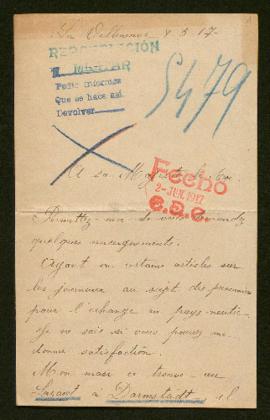 La 8 5 17
RECONCILIACIÓN
MILITAR
Pedir informes
Que se hace así
Devolver
5479
A sa Majesté le Roi
Fecho
2-JUN.1917
Permettez-moi de vous demander
quelques renseignements.
Ayant vu certains articles sur
les journaux au sujet des prisonniers
pour l'échange en pays neutre
Je ne sais si vous pouvez me
donner satisfaction.
Mon mari se trouve au
Lazaret a Darmstadt il